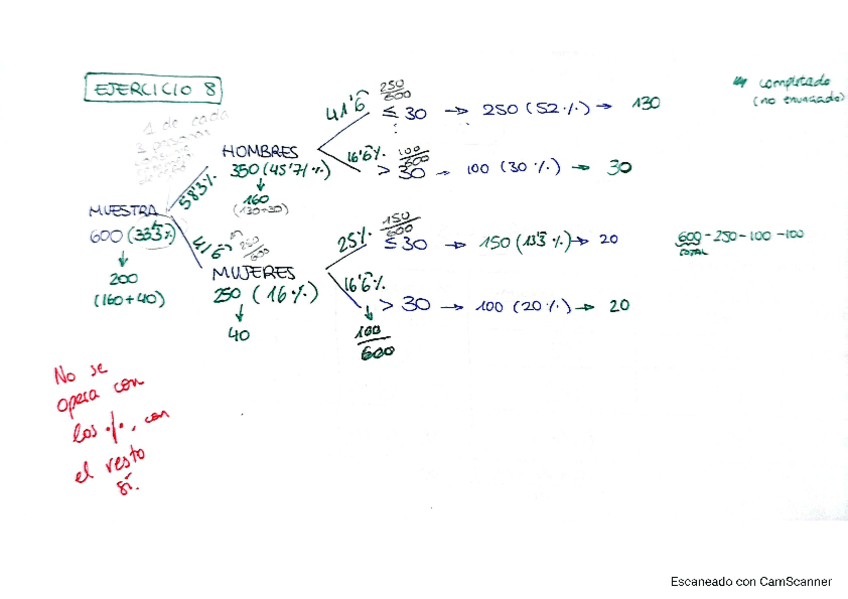 EJERCICIO 8
1 de cada
3 personas
completado
(no truncado)
MUESTRA
600 (33'3%)
200
(160+40)
58'3%
HOMBRES
350 (45'71%)
160
(130+30)
41'6
250/600
≤ 30 → 250 (52%) → 130
16'6% 100/600
> 30 → 100 (30%) → 30
41'6 250/600
MUJERES
250 (16%)
40
25% 150/600
≤ 30 → 150 (13'3%) → 20
600 - 250 - 100 - 100
TOTAL
16'6%
> 30 → 100 (20%) → 20
100/600
No se
opera con
los %, con
el resto
sí.
Escaneado con CamScanner